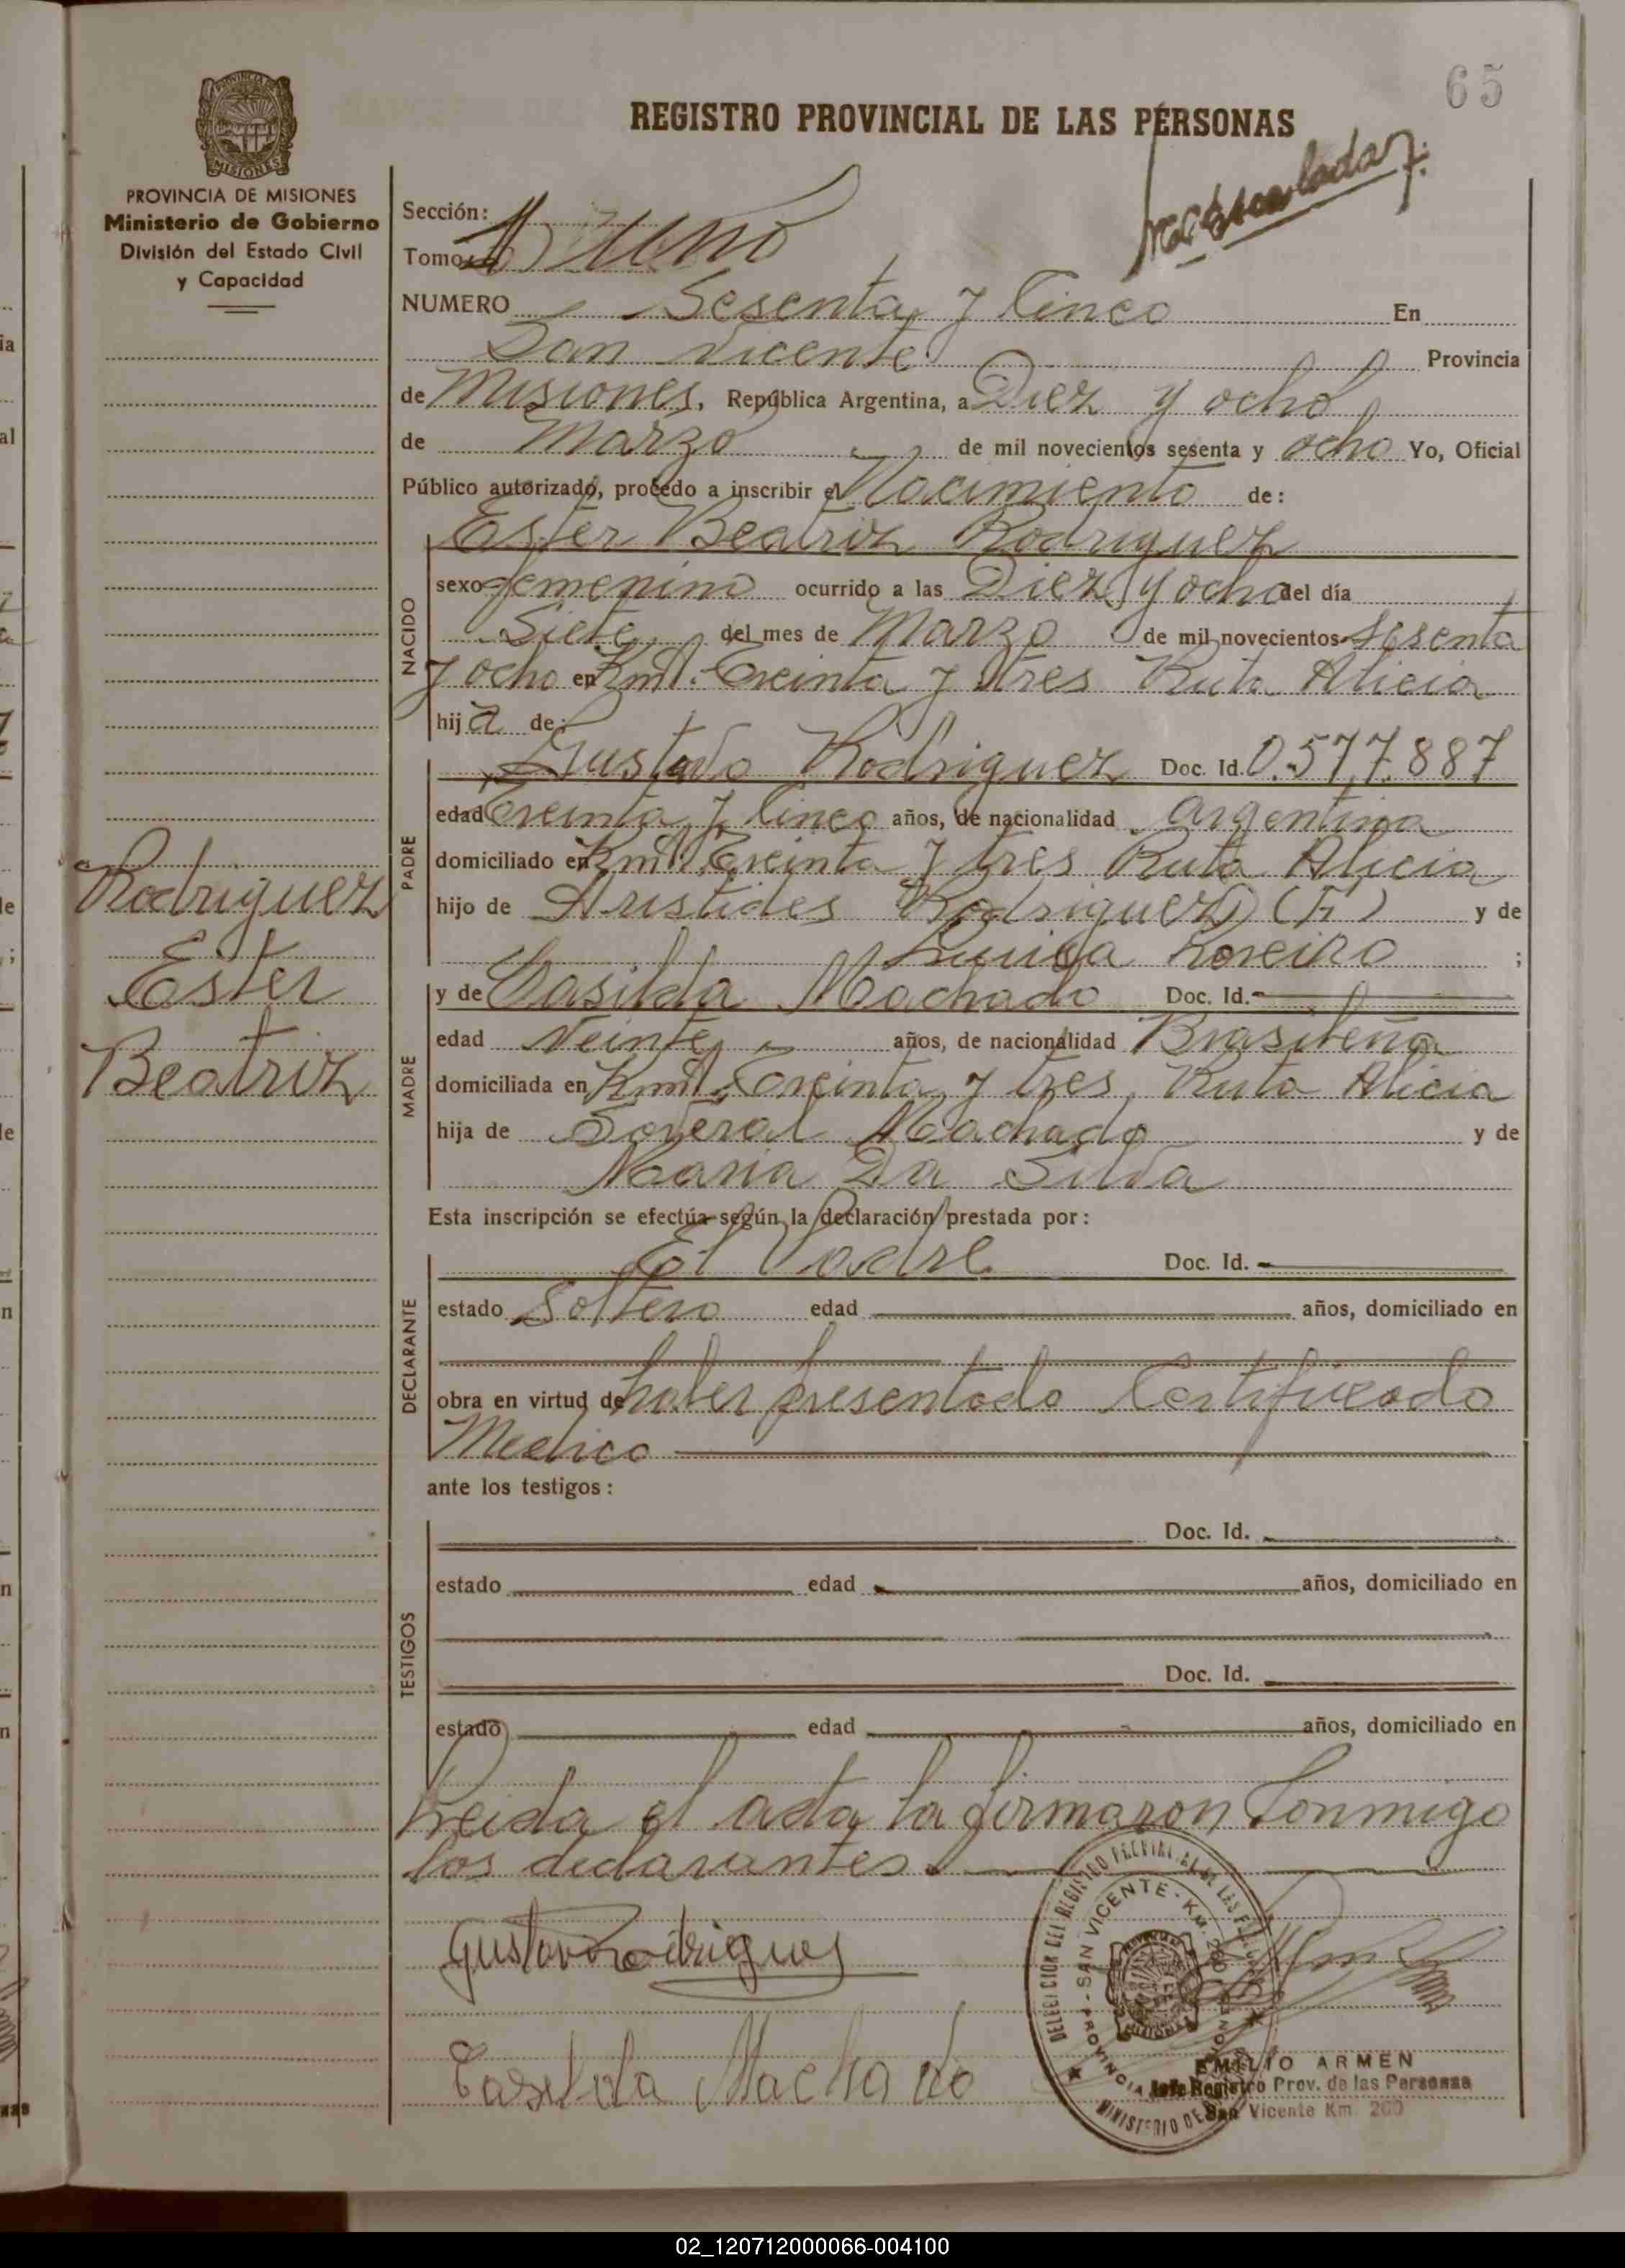 65
REGISTRO PROVINCIAL DE LAS PERSONAS
PROVINCIA DE MISIONES
Ministerio de Gobierno
División del Estado Civil
y Capacidad
Sección:
Tomo 1 uno
NUMERO Sesenta y Cinco En
San Vicente Provincia
de Misiones, República Argentina, a Diez y ocho
de Marzo de mil novecientos sesenta y ocho Yo, Oficial
Público autorizado, procedo a inscribir el Nacimiento de:
Ester Beatriz Rodriguez
NACIDO
sexo femenino ocurrido a las Diez y ocho del día
Siete del mes de Marzo de mil novecientos Sesenta
y ocho en Kmt. Treinta y tres Ruta Alicia
hija de:
Gustavo Rodriguez Doc. Id. 0.577.887
PADRE
edad Treinta y Cinco años, de nacionalidad Argentina
domiciliado en Kmt. Treinta y tres Ruta Alicia
hijo de Aristides Rodriguez (F) y de
Luisa ;
y de Casilda Machado Doc. Id.
MADRE
edad Veinte años, de nacionalidad Brasileña
domiciliada en Kmt. Treinta y tres, Ruta Alicia
hija de Machado y de
Maria Da Silva
Rodriguez
Ester
Beatriz
Esta inscripción se efectúa según la declaración prestada por:
El Padre Doc. Id.
DECLARANTE
estado Soltero edad años, domiciliado en
obra en virtud de haber presentado Certificado
Medico
ante los testigos:
Doc. Id.
TESTIGOS
estado edad años, domiciliado en
Doc. Id.
estado edad años, domiciliado en
Leida el acta la firmaron Conmigo
los declarantes.
Gustavo Rodrigues
Casilda Machado
SAN VICENTE - KM.
EMILIO ARMEN
Jefe Registro Prov. de las Personas
San Vicente Km. 260
02_120712000066-004100